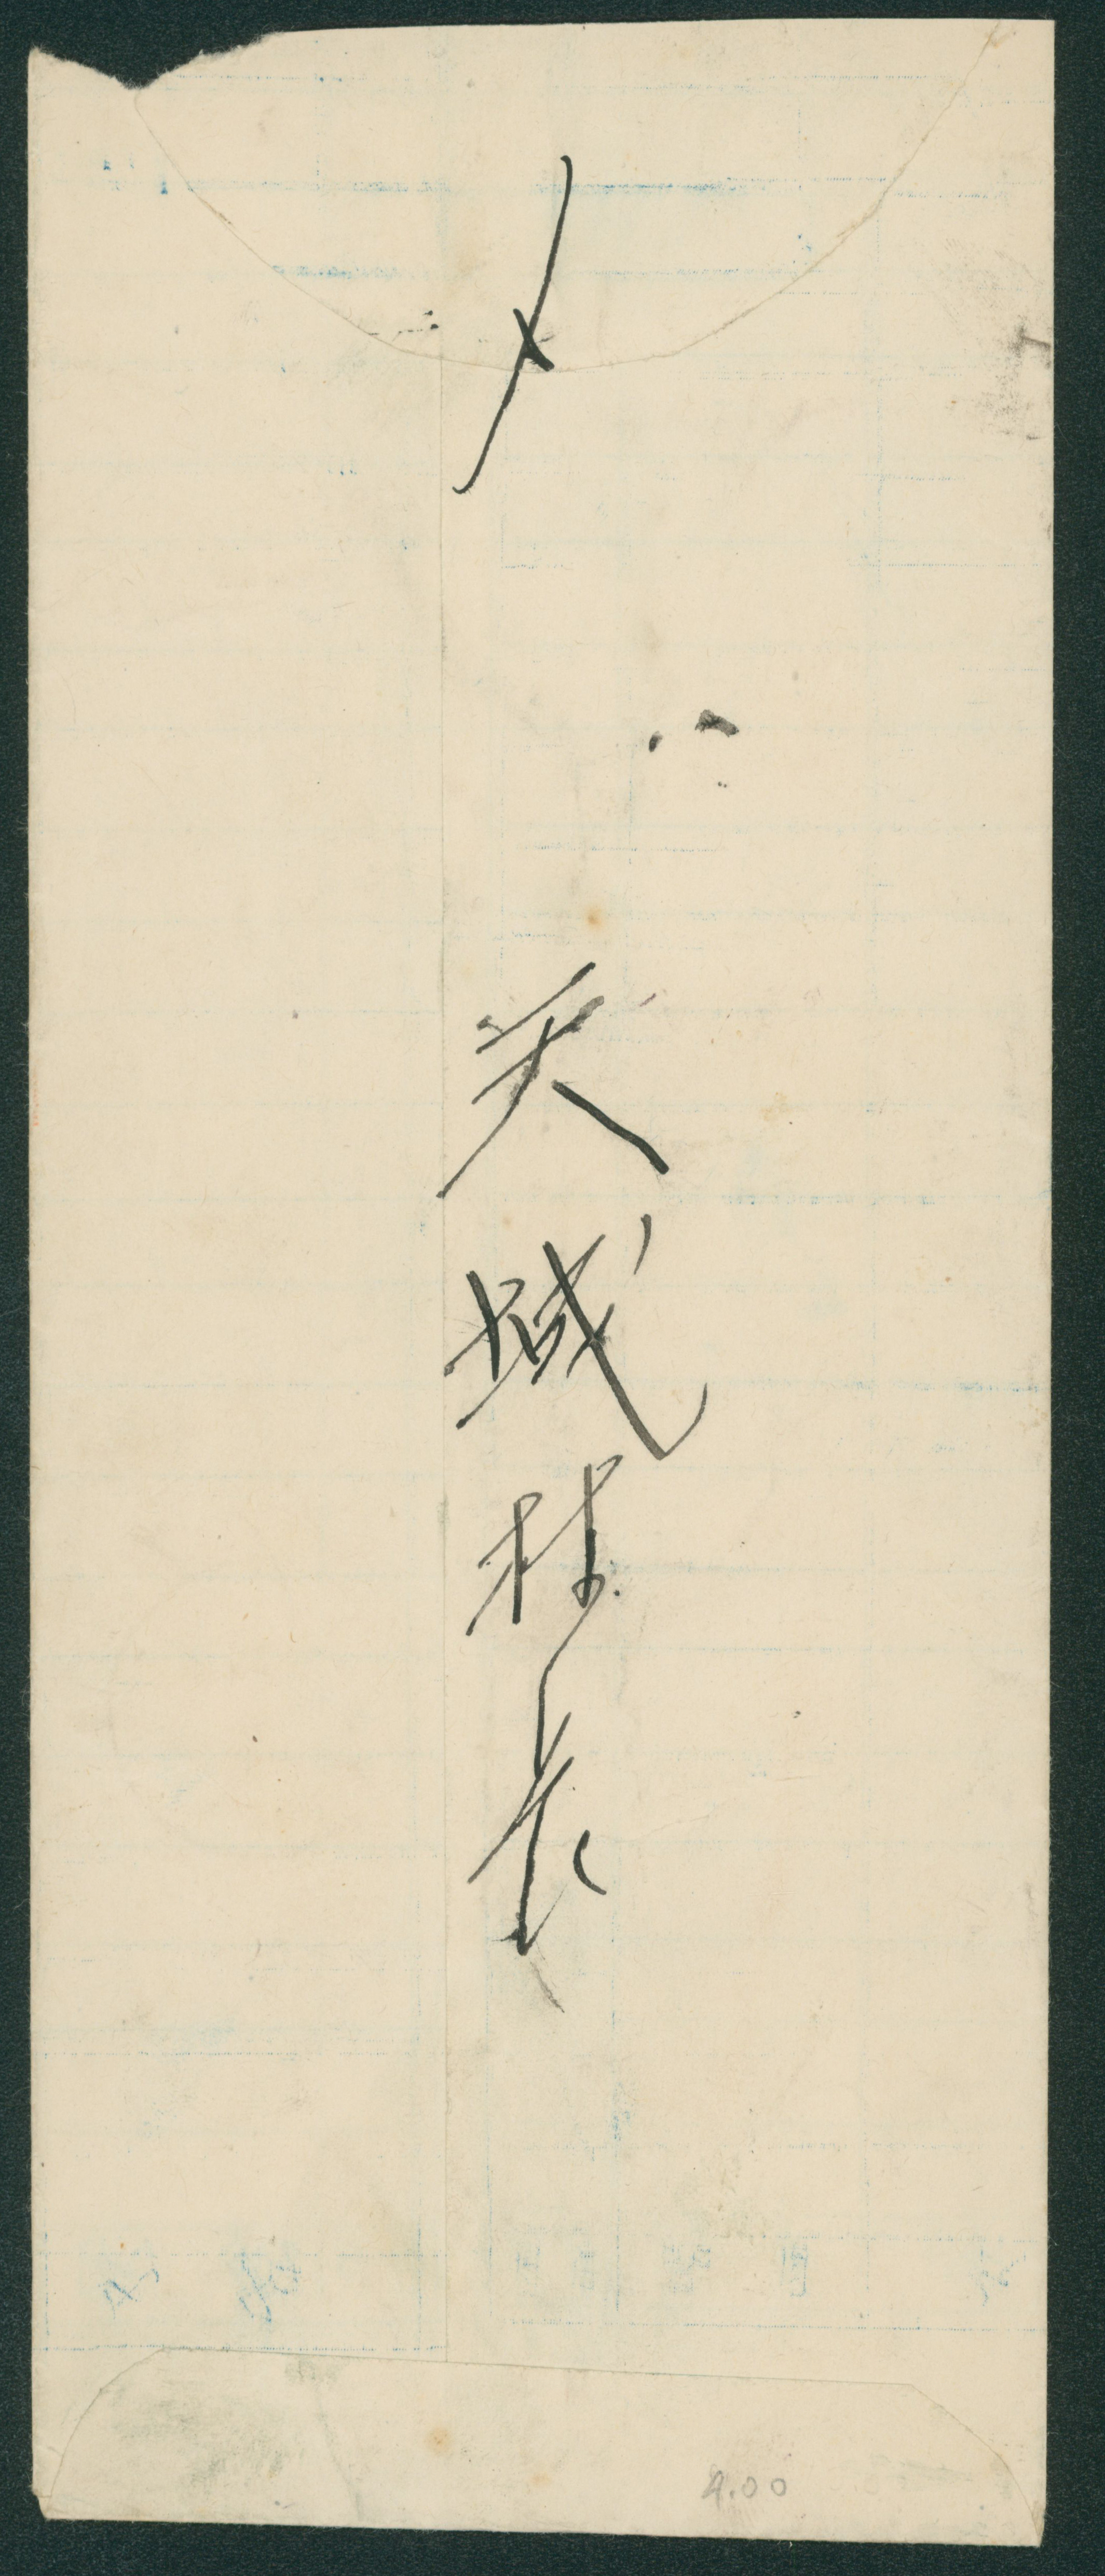 〆
天城村長
4.00